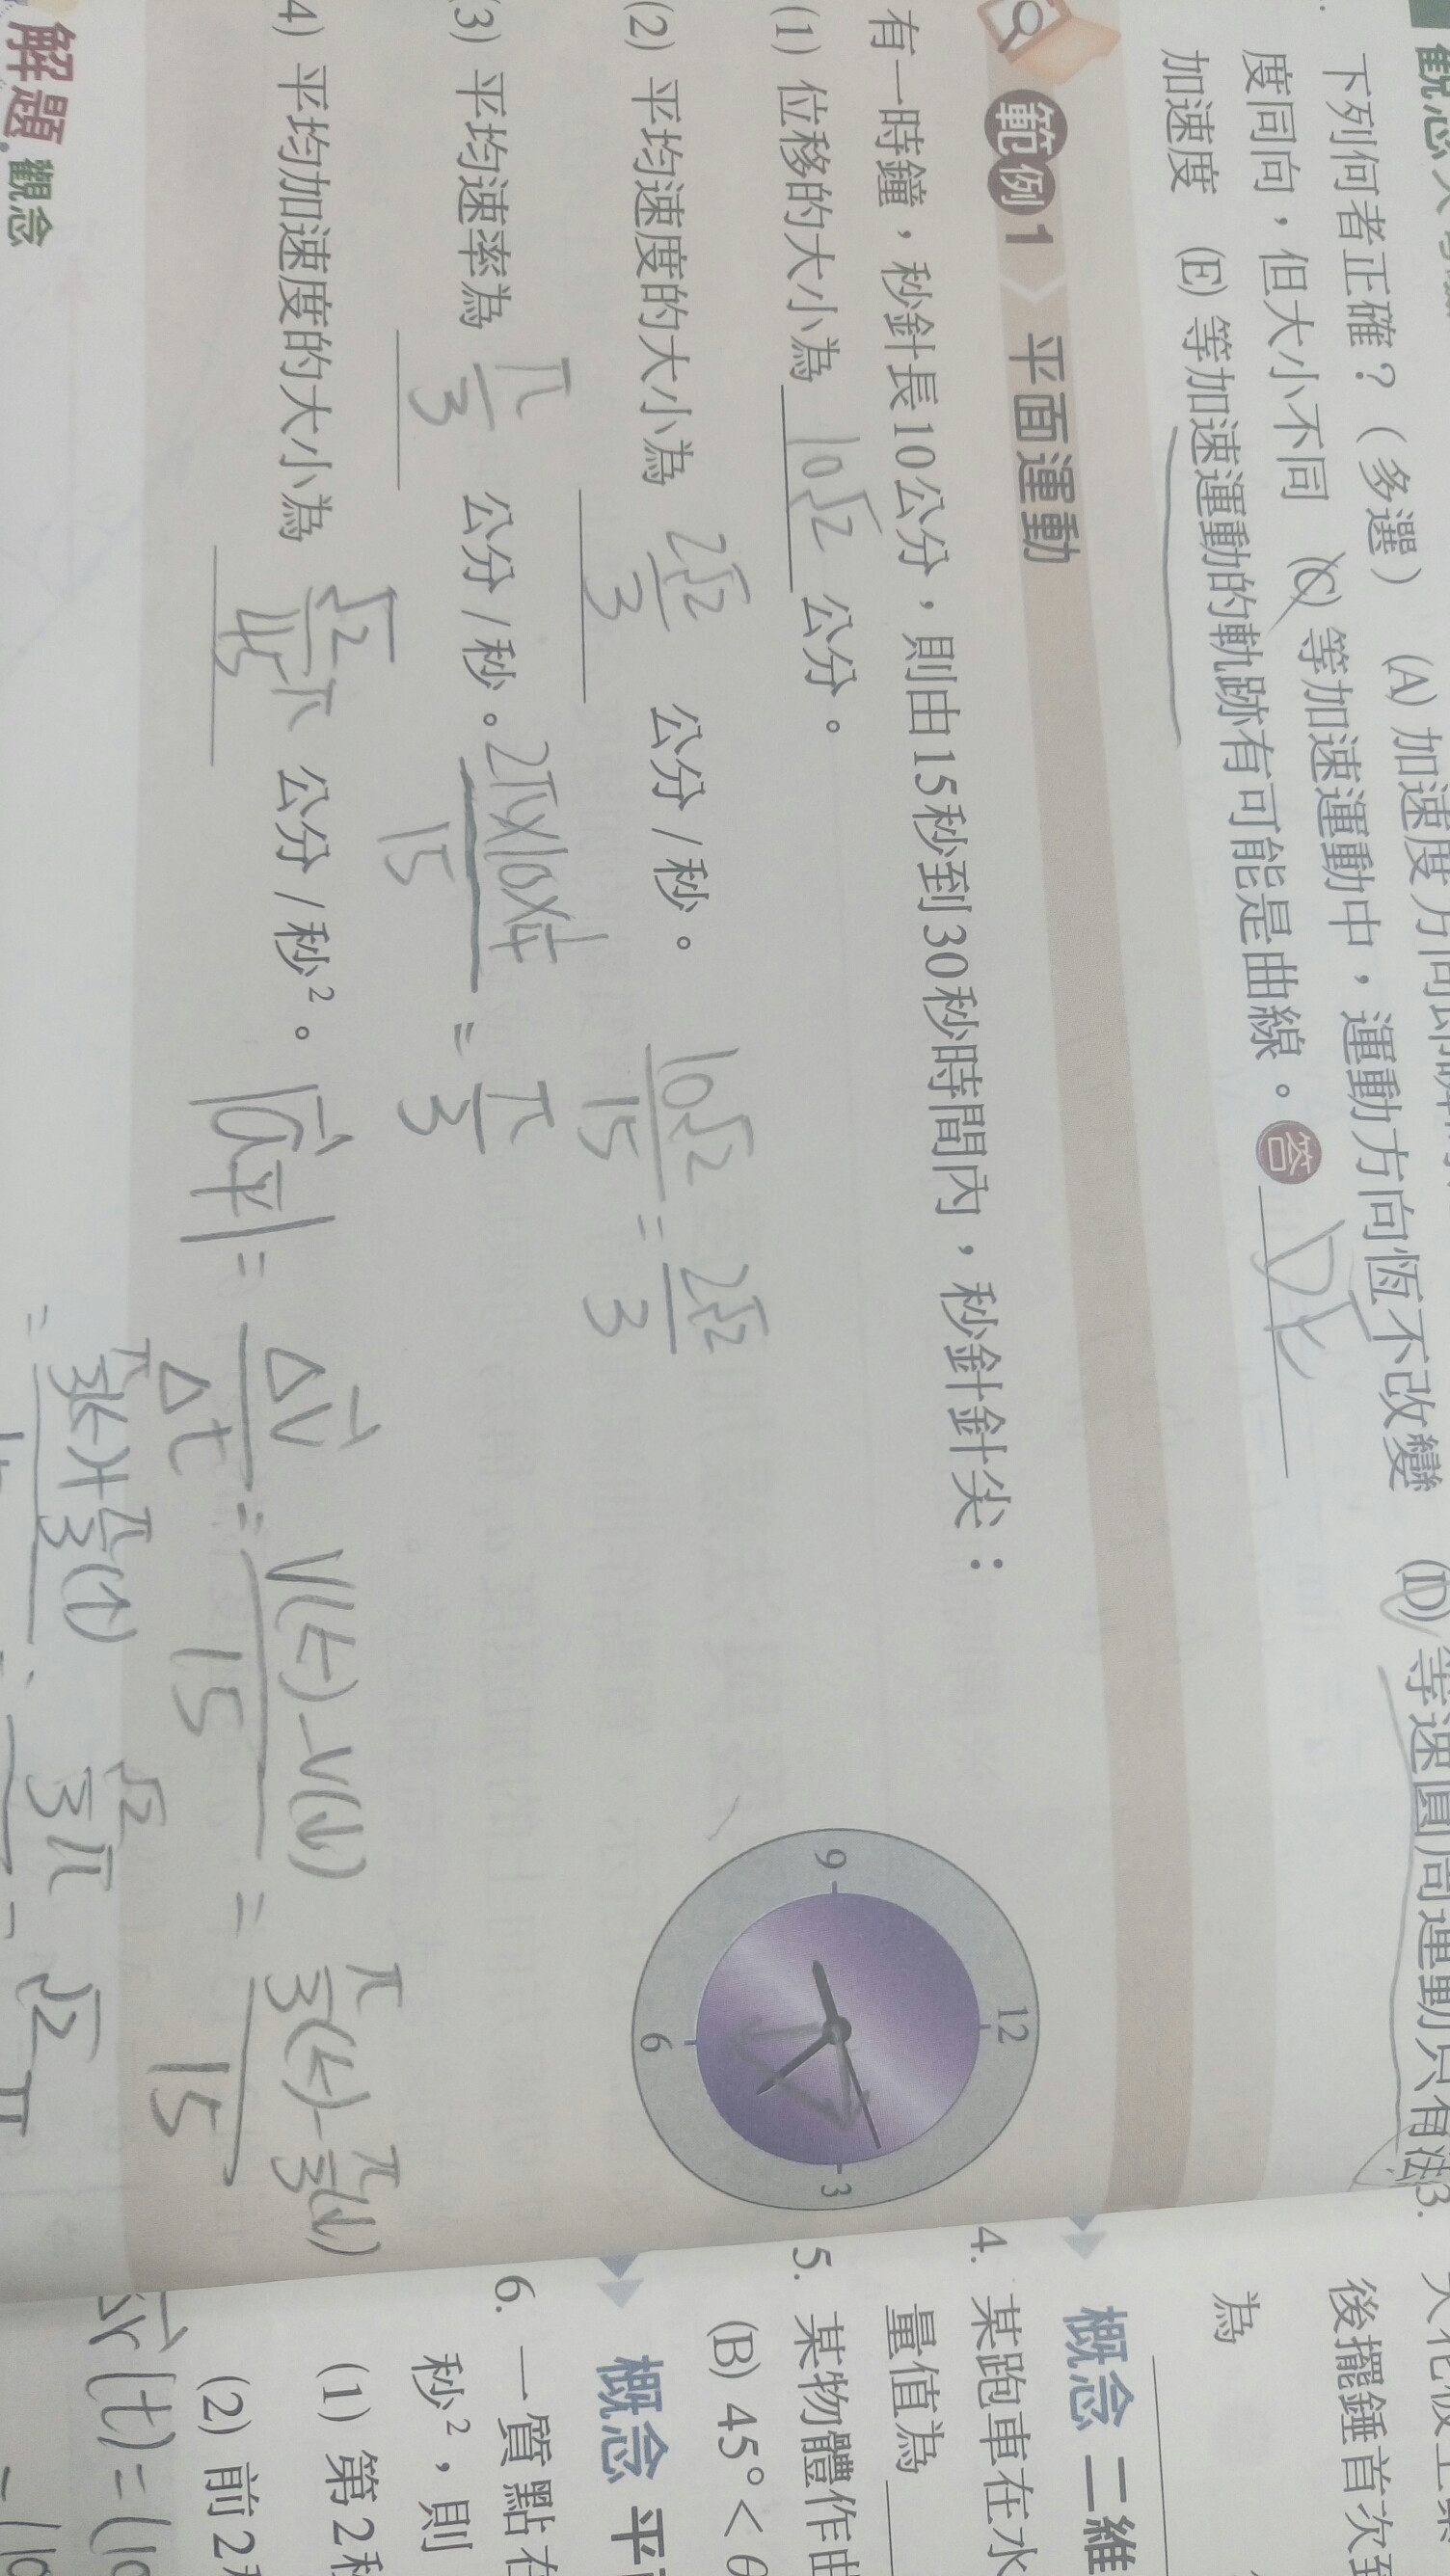 下列何者正確？（多選） (A) 加速度方向即
度同向，但大小不同 (C) 等加速運動中，運動方向恆不改變 (D) 等速圓周運動只有法
加速度 (E) 等加速運動的軌跡有可能是曲線。 答 DE
範例1 平面運動
有一時鐘，秒針長10公分，則由15秒到30秒時間內，秒針針尖：
(1) 位移的大小為 10√2 公分。
(2) 平均速度的大小為 2√2/3 公分/秒。 10√2/15 = 2√2/3
(3) 平均速率為 π/3 公分/秒。 2π×10×1/4 / 15 = π/3
4) 平均加速度的大小為 √2/45 π 公分/秒²。 |a⃗平| = Δv⃗/Δt = V(←)-V(↓) / 15 = π/3(←)-π/3(↓) / 15
= π/3(←)+π/3(↑)
√2/3 π
√2 π
12
3
6
9
解題 觀念
3.
後擺錘首次到
為
概念 二維
4. 某跑車在水
量值為
5. 某物體作曲
(B) 45° < θ
概念 平
6. 一質點在
秒²，則
(1) 第2秒
(2) 前2秒